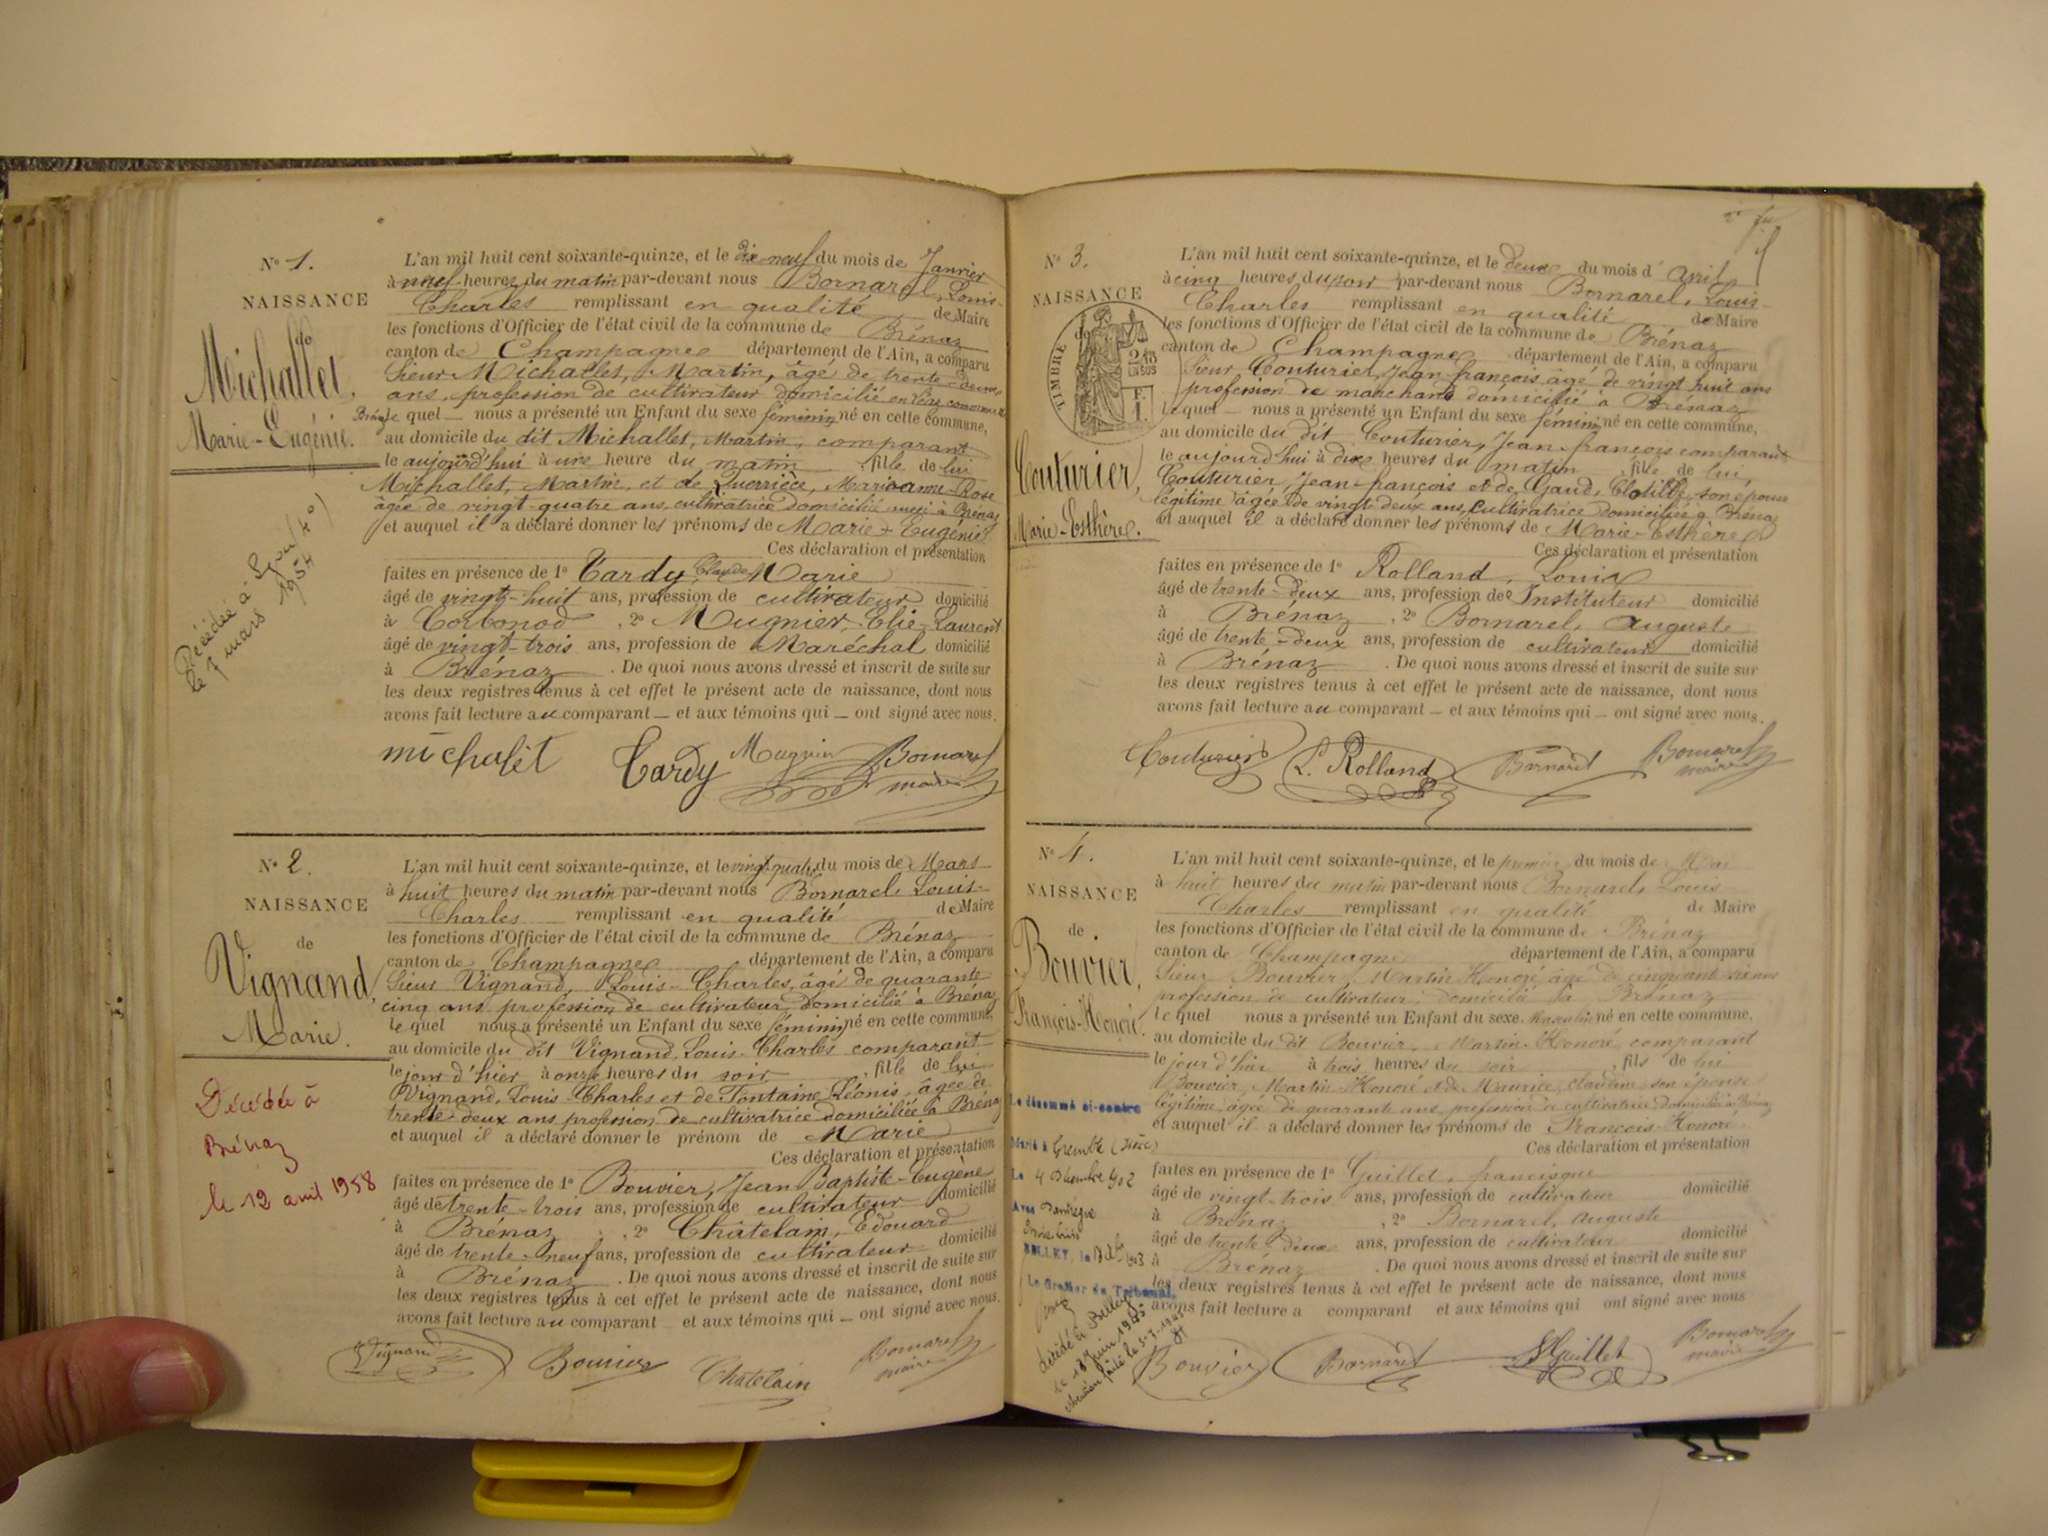 N° 1.
NAISSANCE
de
Michallet,
Marie-Eugénie.
Décédée à Lyon (4e)
le 7 mars 1954
L'an mil huit cent soixante-quinze, et le dix-neuf du mois de Janvier
à neuf heures du matin par-devant nous Bornarel, Louis-
Charles remplissant en qualité de Maire
les fonctions d'Officier de l'état civil de la commune de Brénaz
canton de Champagne département de l'Ain, a comparu
Sieur Michallet, Martin, âgé de trente-deux
ans, profession de cultivateur domicilié en cette commune de
Brénaz le quel — nous a présenté un Enfant du sexe féminin né en cette commune,
au domicile du dit Michallet, Martin, comparant
le aujourd'hui à une heure du matin, fille de lui
Michallet, Martin, et de Querrièce, Marie-Rose
âgée de vingt-quatre ans, cultivatrice domiciliée aussi à Brénaz
et auquel il a déclaré donner les prénoms de Marie-Eugénie
Ces déclaration et présentation
faites en présence de 1° Tardy, Claude Marie
âgé de vingt-huit ans, profession de cultivateur domicilié
à Corbonod, 2° Mugnier, Elie-Laurent
âgé de vingt-trois ans, profession de Maréchal domicilié
à Brénaz. De quoi nous avons dressé et inscrit de suite sur
les deux registres tenus à cet effet le présent acte de naissance, dont nous
avons fait lecture au comparant — et aux témoins qui — ont signé avec nous.
michalet Tardy Mugnier Bornarel
maire
N° 2.
NAISSANCE
de
Vignand,
Marie.
Décédée à
Brénaz
le 12 avril 1958
L'an mil huit cent soixante-quinze, et le vingt-quatre du mois de Mars
à huit heures du matin par-devant nous Bornarel, Louis-
Charles remplissant en qualité de Maire
les fonctions d'Officier de l'état civil de la commune de Brénaz
canton de Champagne département de l'Ain, a comparu
Sieur Vignand, Louis-Charles, âgé de quarante-
cinq ans profession de cultivateur domicilié à Brénaz
le quel nous a présenté un Enfant du sexe féminin né en cette commune,
au domicile du dit Vignand, Louis-Charles comparant
le jour d'hier à onze heures du soir, fille de lui
Vignand, Louis-Charles et de Fontaine Léonie, âgée de
trente-deux ans profession de cultivatrice domiciliée à Brénaz
et auquel il a déclaré donner le prénom de Marie
Ces déclaration et présentation
faites en présence de 1° Bouvier, Jean Baptiste-Eugène
âgé de trente-trois ans, profession de cultivateur domicilié
à Brénaz, 2° Châtelain, Edouard
âgé de trente-neuf ans, profession de cultivateur domicilié
à Brénaz. De quoi nous avons dressé et inscrit de suite sur
les deux registres tenus à cet effet le présent acte de naissance, dont nous
avons fait lecture au comparant — et aux témoins qui — ont signé avec nous.
Vignand Bouvier Chatelain Bornarel
maire
N° 3.
NAISSANCE
de
TIMBRE
Couturier,
Marie-Esthère.
L'an mil huit cent soixante-quinze, et le deux du mois d'avril
à cinq heures du soir par-devant nous Bornarel, Louis-
Charles remplissant en qualité de Maire
les fonctions d'Officier de l'état civil de la commune de Brénaz
canton de Champagne département de l'Ain, a comparu
Sieur Couturier, Jean françois, âgé de vingt huit ans
profession de marchand domicilié à Brénaz
le quel — nous a présenté un Enfant du sexe féminin né en cette commune,
au domicile du dit Couturier, Jean-françois comparant
le aujourd'hui à dix heures du matin, fille de lui,
Couturier, Jean-françois et de Gaud, Clotilde, son épouse
légitime âgée de vingt deux ans, cultivatrice domiciliée à Brénaz
et auquel il a déclaré donner les prénoms de Marie-Esthère
Ces déclaration et présentation
faites en présence de 1° Rolland, Louis
âgé de trente-deux ans, profession de Instituteur domicilié
à Brénaz, 2° Bornarel, auguste
âgé de trente-deux ans, profession de cultivateur domicilié
à Brénaz. De quoi nous avons dressé et inscrit de suite sur
les deux registres tenus à cet effet le présent acte de naissance, dont nous
avons fait lecture au comparant — et aux témoins qui — ont signé avec nous.
Couturier L. Rolland Bornarel Bornarel
maire
N° 4.
NAISSANCE
de
Bouvier,
François-Honoré.
Le dénommé ci-contre
Marié à Grenoble (Isère)
Le 4 Décembre 1902
Avec
BELLEY, le 1903
Le Greffier du Tribunal,
décédé à Belley
le 13 juin 1945
L'an mil huit cent soixante-quinze, et le premier du mois de Mai
à huit heures du matin par-devant nous Bornarel, Louis-
Charles remplissant en qualité de Maire
les fonctions d'Officier de l'état civil de la commune de Brénaz
canton de Champagne département de l'Ain, a comparu
Sieur Bouvier, Martin-Honoré, âgé de cinquante ans
profession de cultivateur, domicilié à Brénaz
le quel nous a présenté un Enfant du sexe Masculin né en cette commune,
au domicile du dit Bouvier, Martin-Honoré, comparant
le jour d'hier à trois heures du soir, fils de lui
Bouvier, Martin-Honoré et de Maurice, claudine son épouse
légitime, âgée de quarante ans, profession de cultivatrice domiciliée à Brénaz
et auquel il a déclaré donner les prénoms de François-Honoré.
Ces déclaration et présentation
faites en présence de 1° Guillet, francisque
âgé de vingt-trois ans, profession de cultivateur domicilié
à Brénaz, 2° Bornarel, auguste
âgé de trente deux ans, profession de cultivateur domicilié
à Brénaz. De quoi nous avons dressé et inscrit de suite sur
les deux registres tenus à cet effet le présent acte de naissance, dont nous
avons fait lecture a comparant et aux témoins qui ont signé avec nous
Bouvier Bornarel Guillet Bornarel
maire